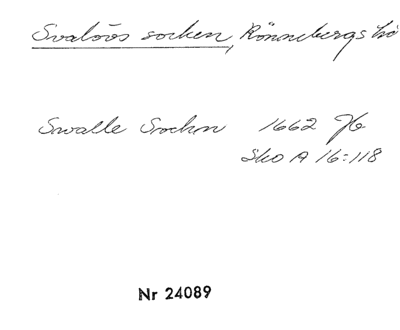 Svalövs socken, Rönnebergs hd
Swalle Sochn 1662 Jb
Sko A 16:118
Nr 24089